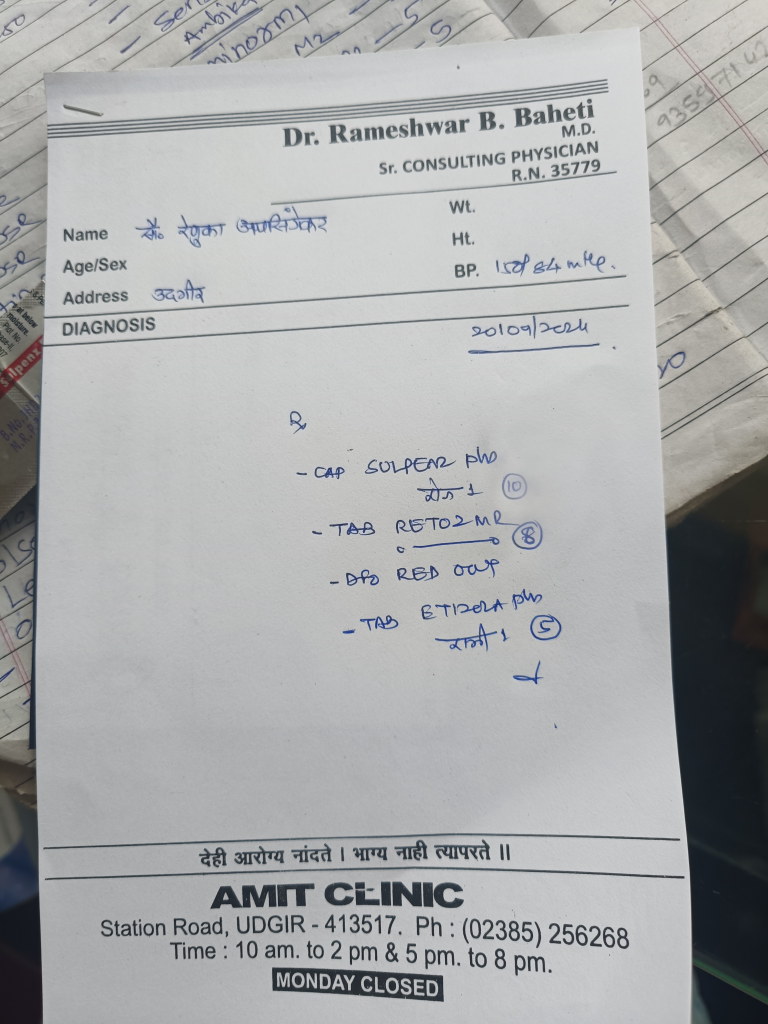 Ambika
M2
Dr. Rameshwar B. Baheti
M.D.
Sr. CONSULTING PHYSICIAN
R.N. 35779
Name सौ. रेणुका
Wt.
Ht.
Age/Sex
BP. 150/84 mHg.
Address उदगीर
DIAGNOSIS
20/09/2024
Rx
- CAP SULPENZ plus
रोज 1 (10)
- TAB RETOZ MR
(8)
RED
- TAB ETIZOLA plus
रात्री 1 (5)
देही आरोग्य नांदते । भाग्य नाही त्यापरते ॥
AMIT CLINIC
Station Road, UDGIR - 413517. Ph : (02385) 256268
Time : 10 am. to 2 pm & 5 pm. to 8 pm.
MONDAY CLOSED